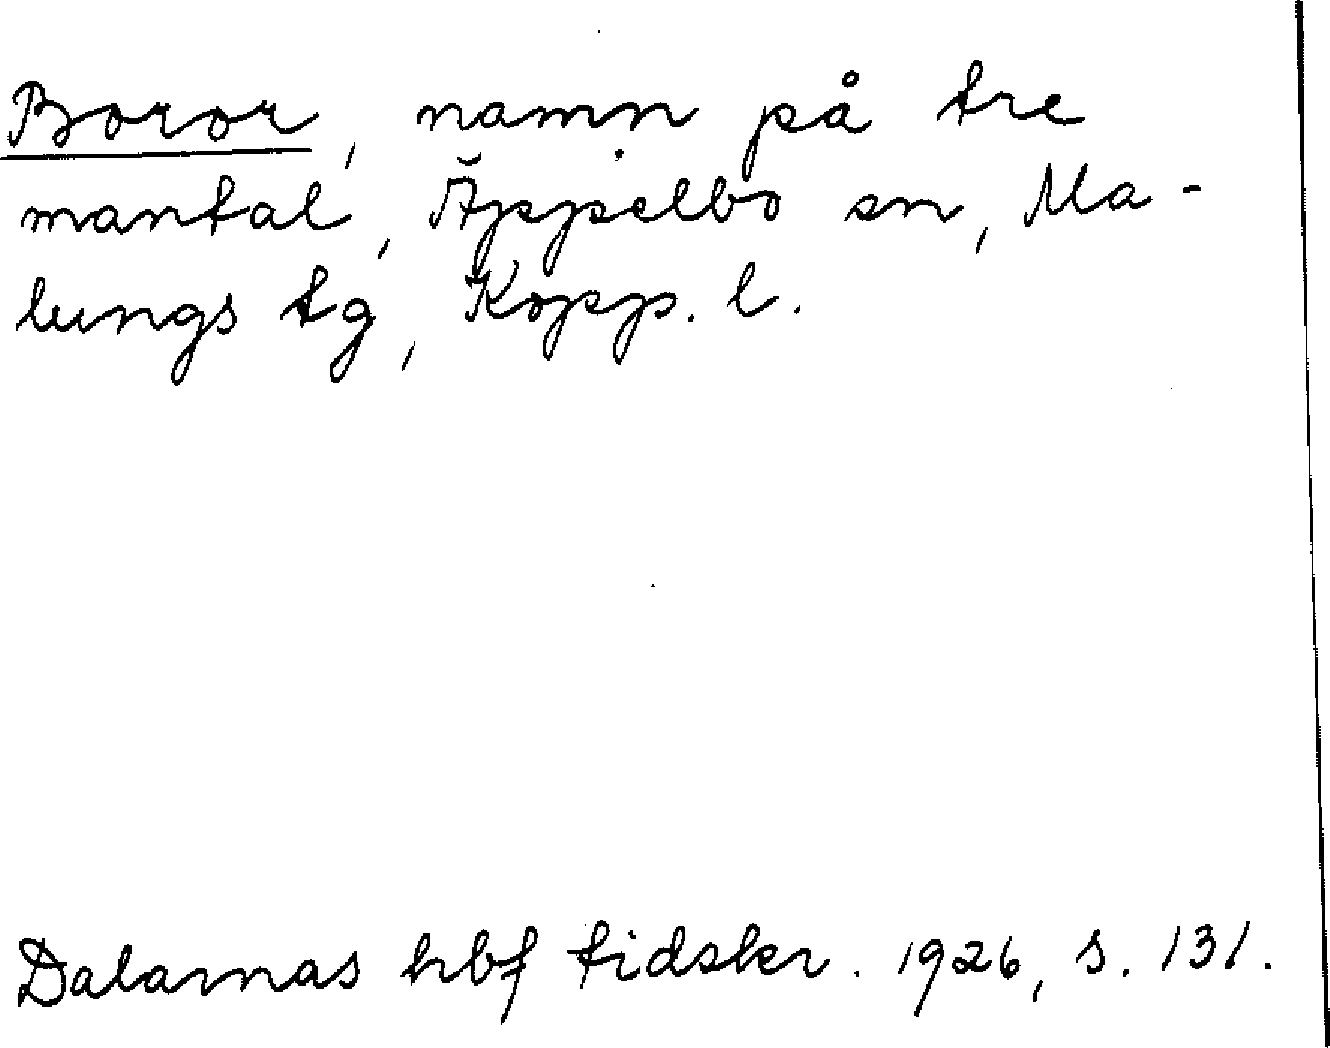 Boror, namn på tre
mantal, Äppelbo sn, Ma-
lungs tg, Kopp. l.
Dalarnas hbf tidskr. 1926, s. 131.